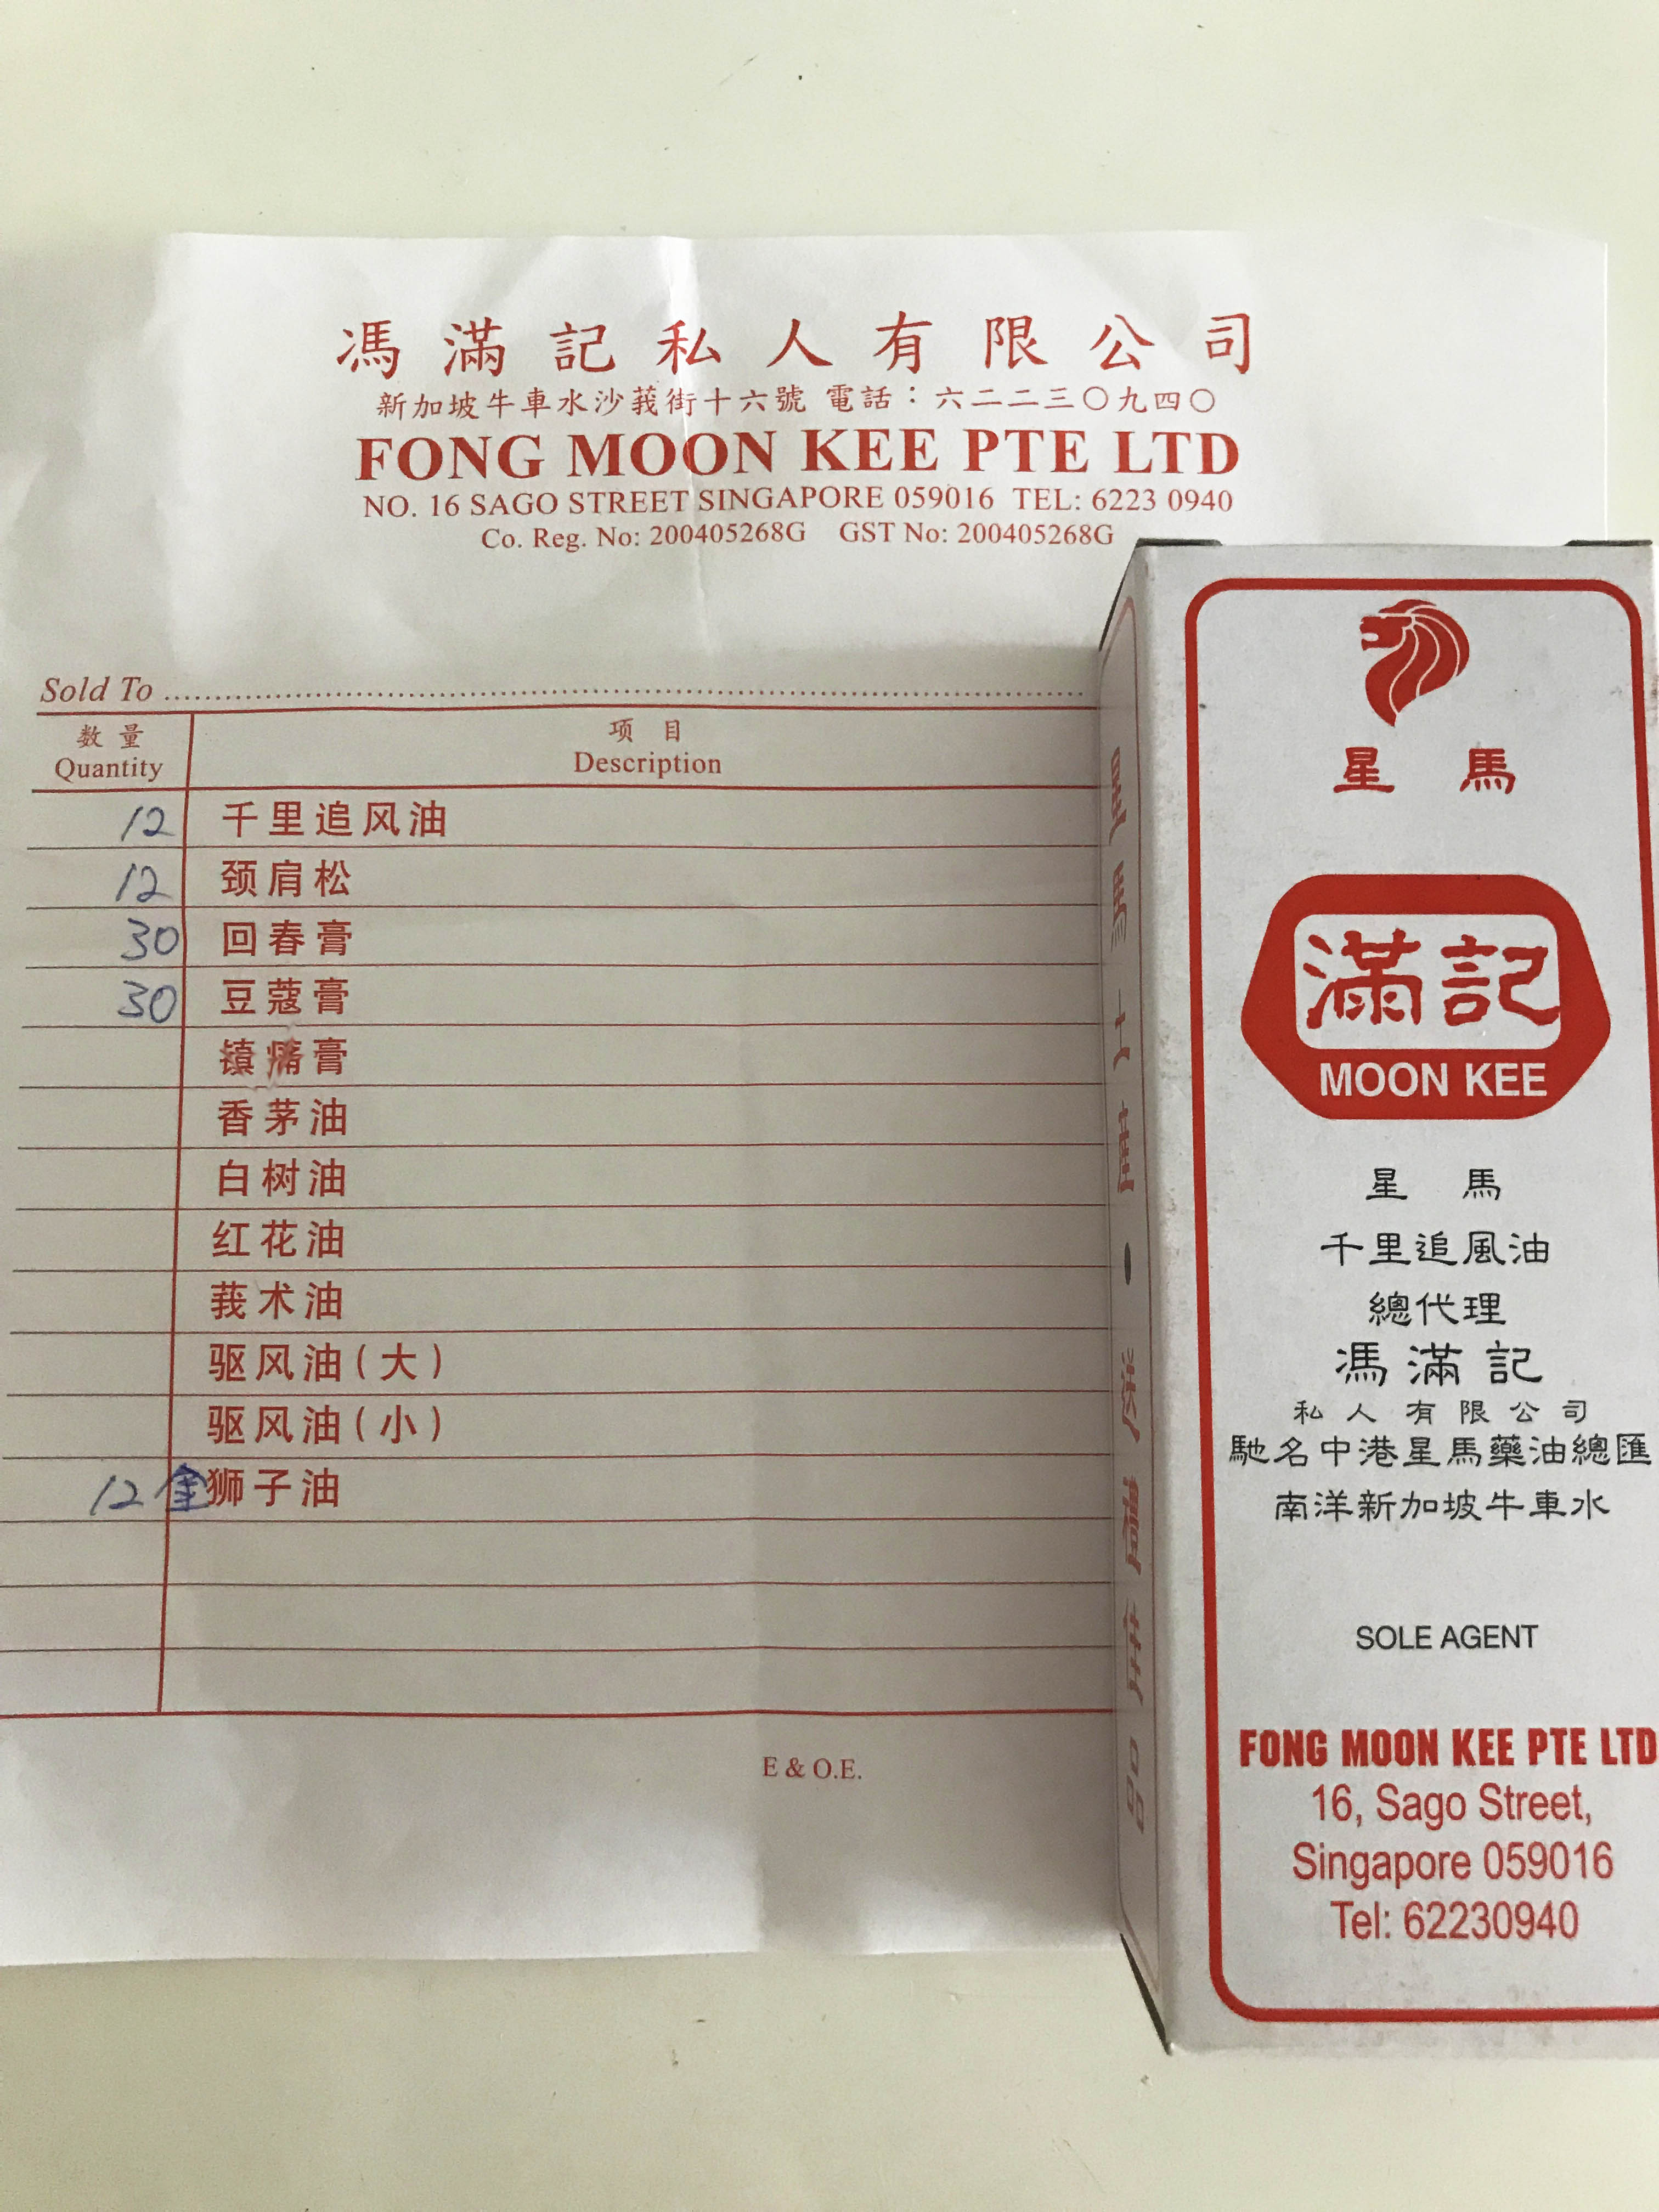 馮滿記私人有限公司
新加坡牛車水沙莪街十六號 電話：六二二三〇九四〇
FONG MOON KEE PTE LTD
NO. 16 SAGO STREET SINGAPORE 059016 TEL: 6223 0940
Co. Reg. No: 200405268G GST No: 200405268G
Sold To
数量 项目
Quantity Description
12 千里追风油
12 颈肩松
30 回春膏
30 豆蔻膏
镇痛膏
香茅油
白树油
红花油
莪术油
驱风油(大)
驱风油(小)
12 金狮子油
E & O.E.
星馬
滿記
MOON KEE
星馬
千里追風油
總代理
馮滿記
私人有限公司
馳名中港星馬藥油總匯
南洋新加坡牛車水
SOLE AGENT
FONG MOON KEE PTE LTD
16, Sago Street,
Singapore 059016
Tel: 62230940